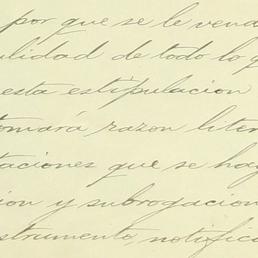 por que se le vend
lidad de todo lo q
esta estipulacion
tomará razon liter
taciones que se hag
ion y subrogacion
strumento, notific